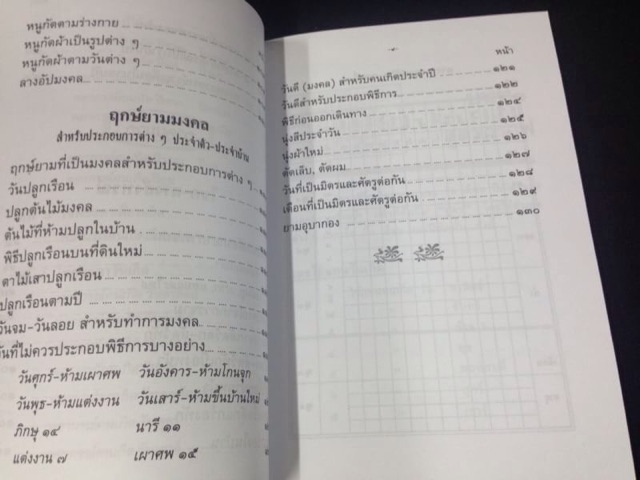 หนูกัดตามร่างกาย
หนูกัดผ้าเป็นรูปต่าง ๆ
หนูกัดผ้าตามวันต่าง ๆ
ลางอัปมงคล
ฤกษ์ยามมงคล
สำหรับประกอบการต่าง ๆ ประจำตัว-ประจำบ้าน
ฤกษ์ยามที่เป็นมงคลสำหรับประกอบการต่าง ๆ
วันปลูกเรือน
ปลูกต้นไม้มงคล
ต้นไม้ที่ห้ามปลูกในบ้าน
พิธีปลูกเรือนบนที่ดินใหม่
ตาไม้เสาปลูกเรือน
ปลูกเรือนตามปี
วันจม-วันลอย สำหรับทำการมงคล
วันที่ไม่ควรประกอบพิธีการบางอย่าง
วันศุกร์-ห้ามเผาศพ วันอังคาร-ห้ามโกนจุก
วันพุธ-ห้ามแต่งงาน วันเสาร์-ห้ามขึ้นบ้านใหม่
ภิกษุ ๑๔ นารี ๑๑
แต่งงาน ๗ เผาศพ ๑๕
หน้า
วันดี (มงคล) สำหรับคนเกิดประจำปี ๑๒๑
วันดีสำหรับประกอบพิธีการ ๑๒๒
พิธีก่อนออกเดินทาง ๑๒๔
นุ่งสีประจำวัน ๑๒๕
นุ่งผ้าใหม่ ๑๒๖
ตัดเล็บ, ตัดผม ๑๒๗
วันที่เป็นมิตรและศัตรูต่อกัน ๑๒๘
เดือนที่เป็นมิตรและศัตรูต่อกัน ๑๒๙
ยามอุบากอง ๑๓๐